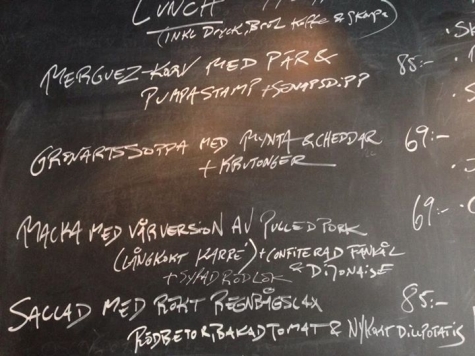 LUNCH
(INKL DRYCK, BRÖD, KAFFE & SKORPA)
MERGUEZ-KORV MED PÄR &
PUMPASTAMP + SENAPSDIPP 85:-
GRÖNÄRTSSOPPA MED MYNTA & CHEDDAR 69:-
+ KRUTONGER
MACKA MED VÅR VERSION AV PULLED PORK 69:-
(LÅNGKOKT KARRÉ) + CONFITERAD FÄNKÅL
& DIJONAISE
+ SYRAD RÖDLÖK
SALLAD MED RÖKT REGNBÅGSLAX 85:-
RÖDBETOR, BAKAD TOMAT & NYKOKT DILLPOTATIS